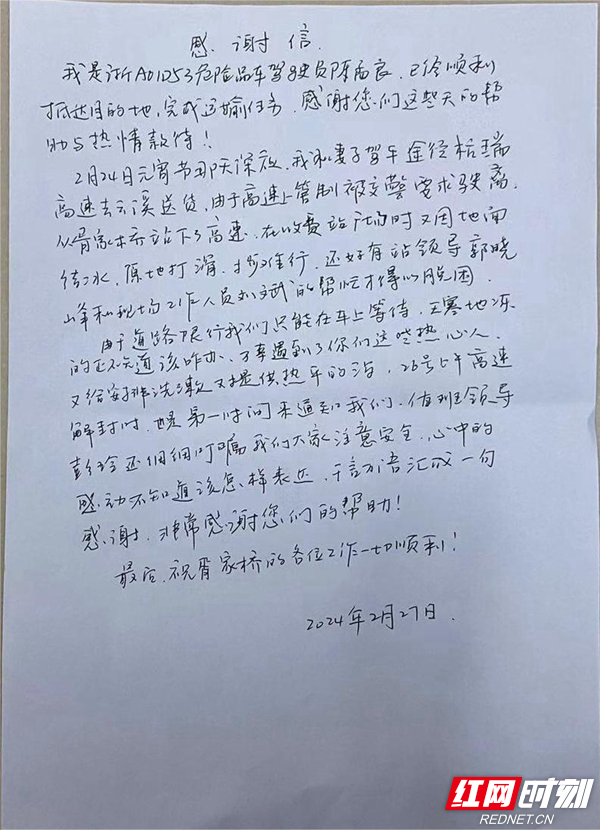 感谢信
我是浙A01D53危险品车驾驶员陈高良,已经顺利
抵达目的地,完成运输任务,感谢您们这些天的帮
助与热情款待!
2月24日元宵节那天深夜,我和妻子驾车途径杭瑞
高速去云溪送货,由于高速上管制被交警要求驶离,
从胥家桥站下了高速,在收费站广场时又因地面
结冰,原地打滑,寸步难行,还好有站领导郭晓
峰和现场工作人员刘斌的帮忙才得以脱困,
由于道路限行我们只能在车上等待,天寒地冻
的正不知道该咋办,万幸遇到了你们这些热心人,
又给安排洗漱又是供热乎的汤,26号上午高速
解封时,也是第一时间来通知我们,值班领导
彭玲还细细叮嘱我们大家注意安全,心中的
感动不知道该怎样表达,千言万语汇成一句
感谢,非常感谢您们的帮助!
最后,祝胥家桥的各位工作一切顺利!
2024年2月27日.
红网时刻
REDNET.CN